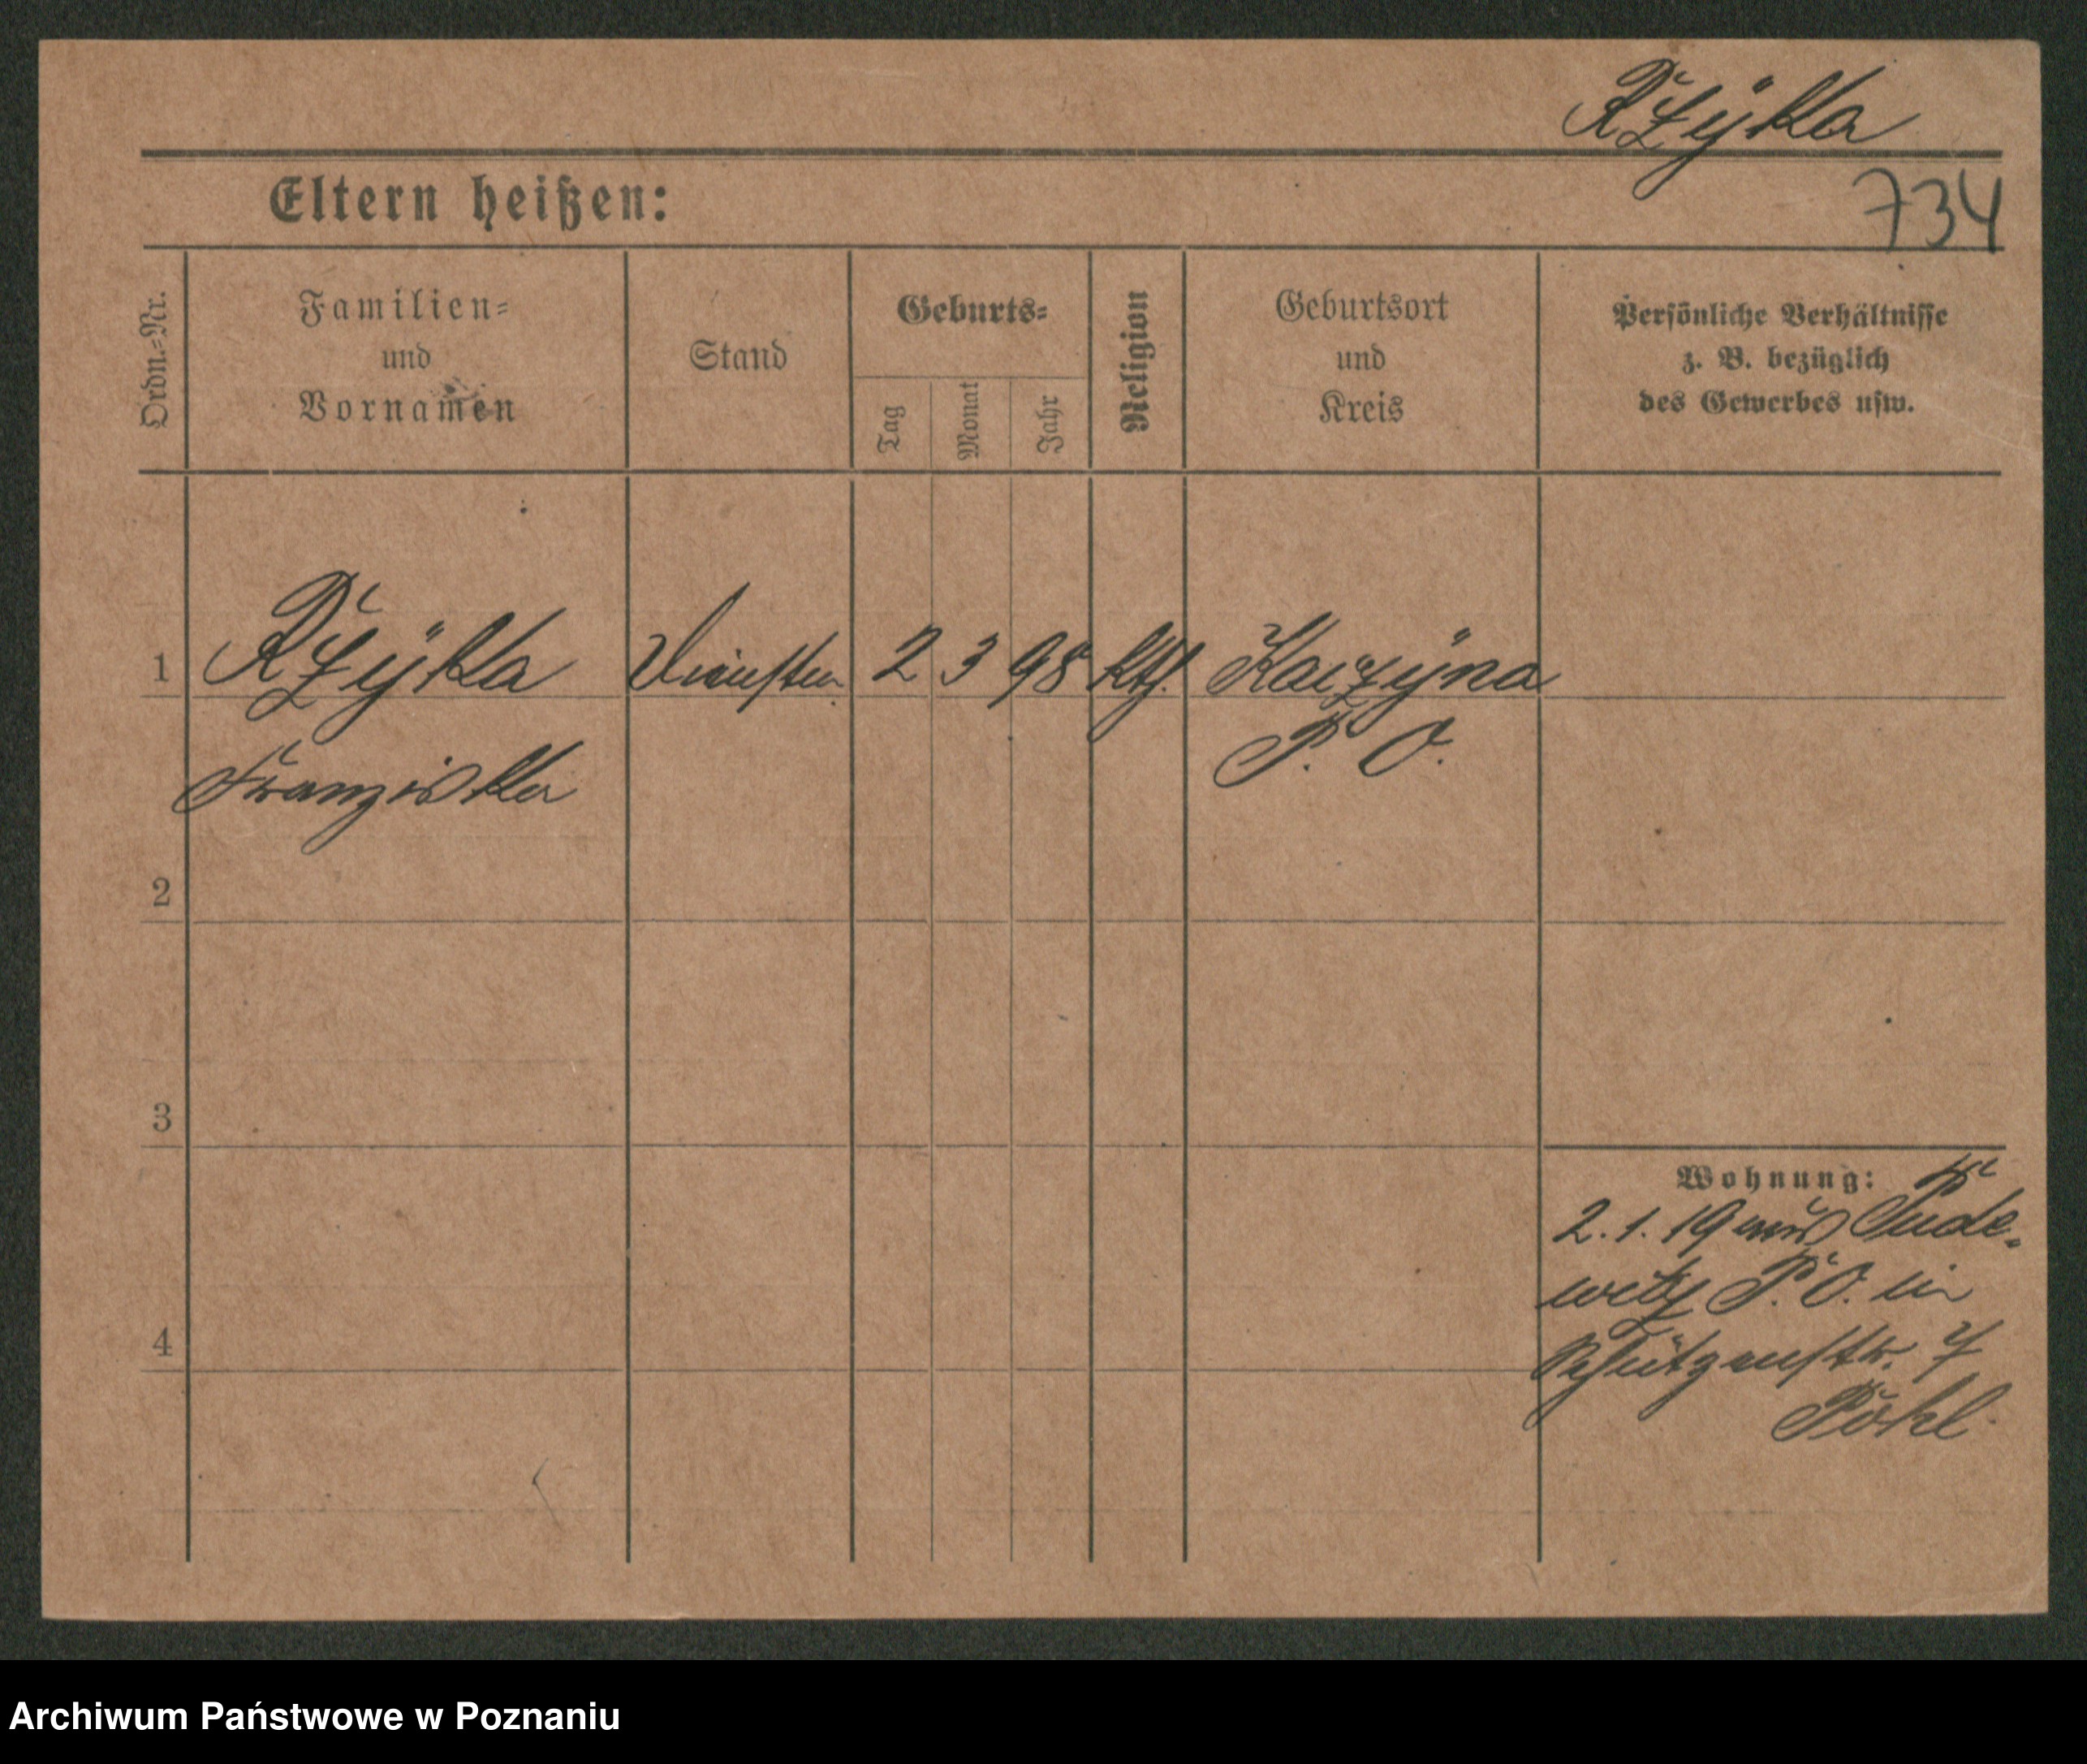 Rzyska
734
Eltern heißen:
Ordn.-Nr.
Familien-
und
Vornamen
Stand
Geburts-
Tag
Monat
Jahr
Religion
Geburtsort
und
Kreis
Persönliche Verhältnisse
z. B. bezüglich
des Gewerbes usw.
1
2 3 98 kth.
P. O.
Franziska
2
3
4
Wohnung:
2.1.19 aus Pude-
witz P. O. in
Schützenstr. 4
Archiwum Państwowe w Poznaniu